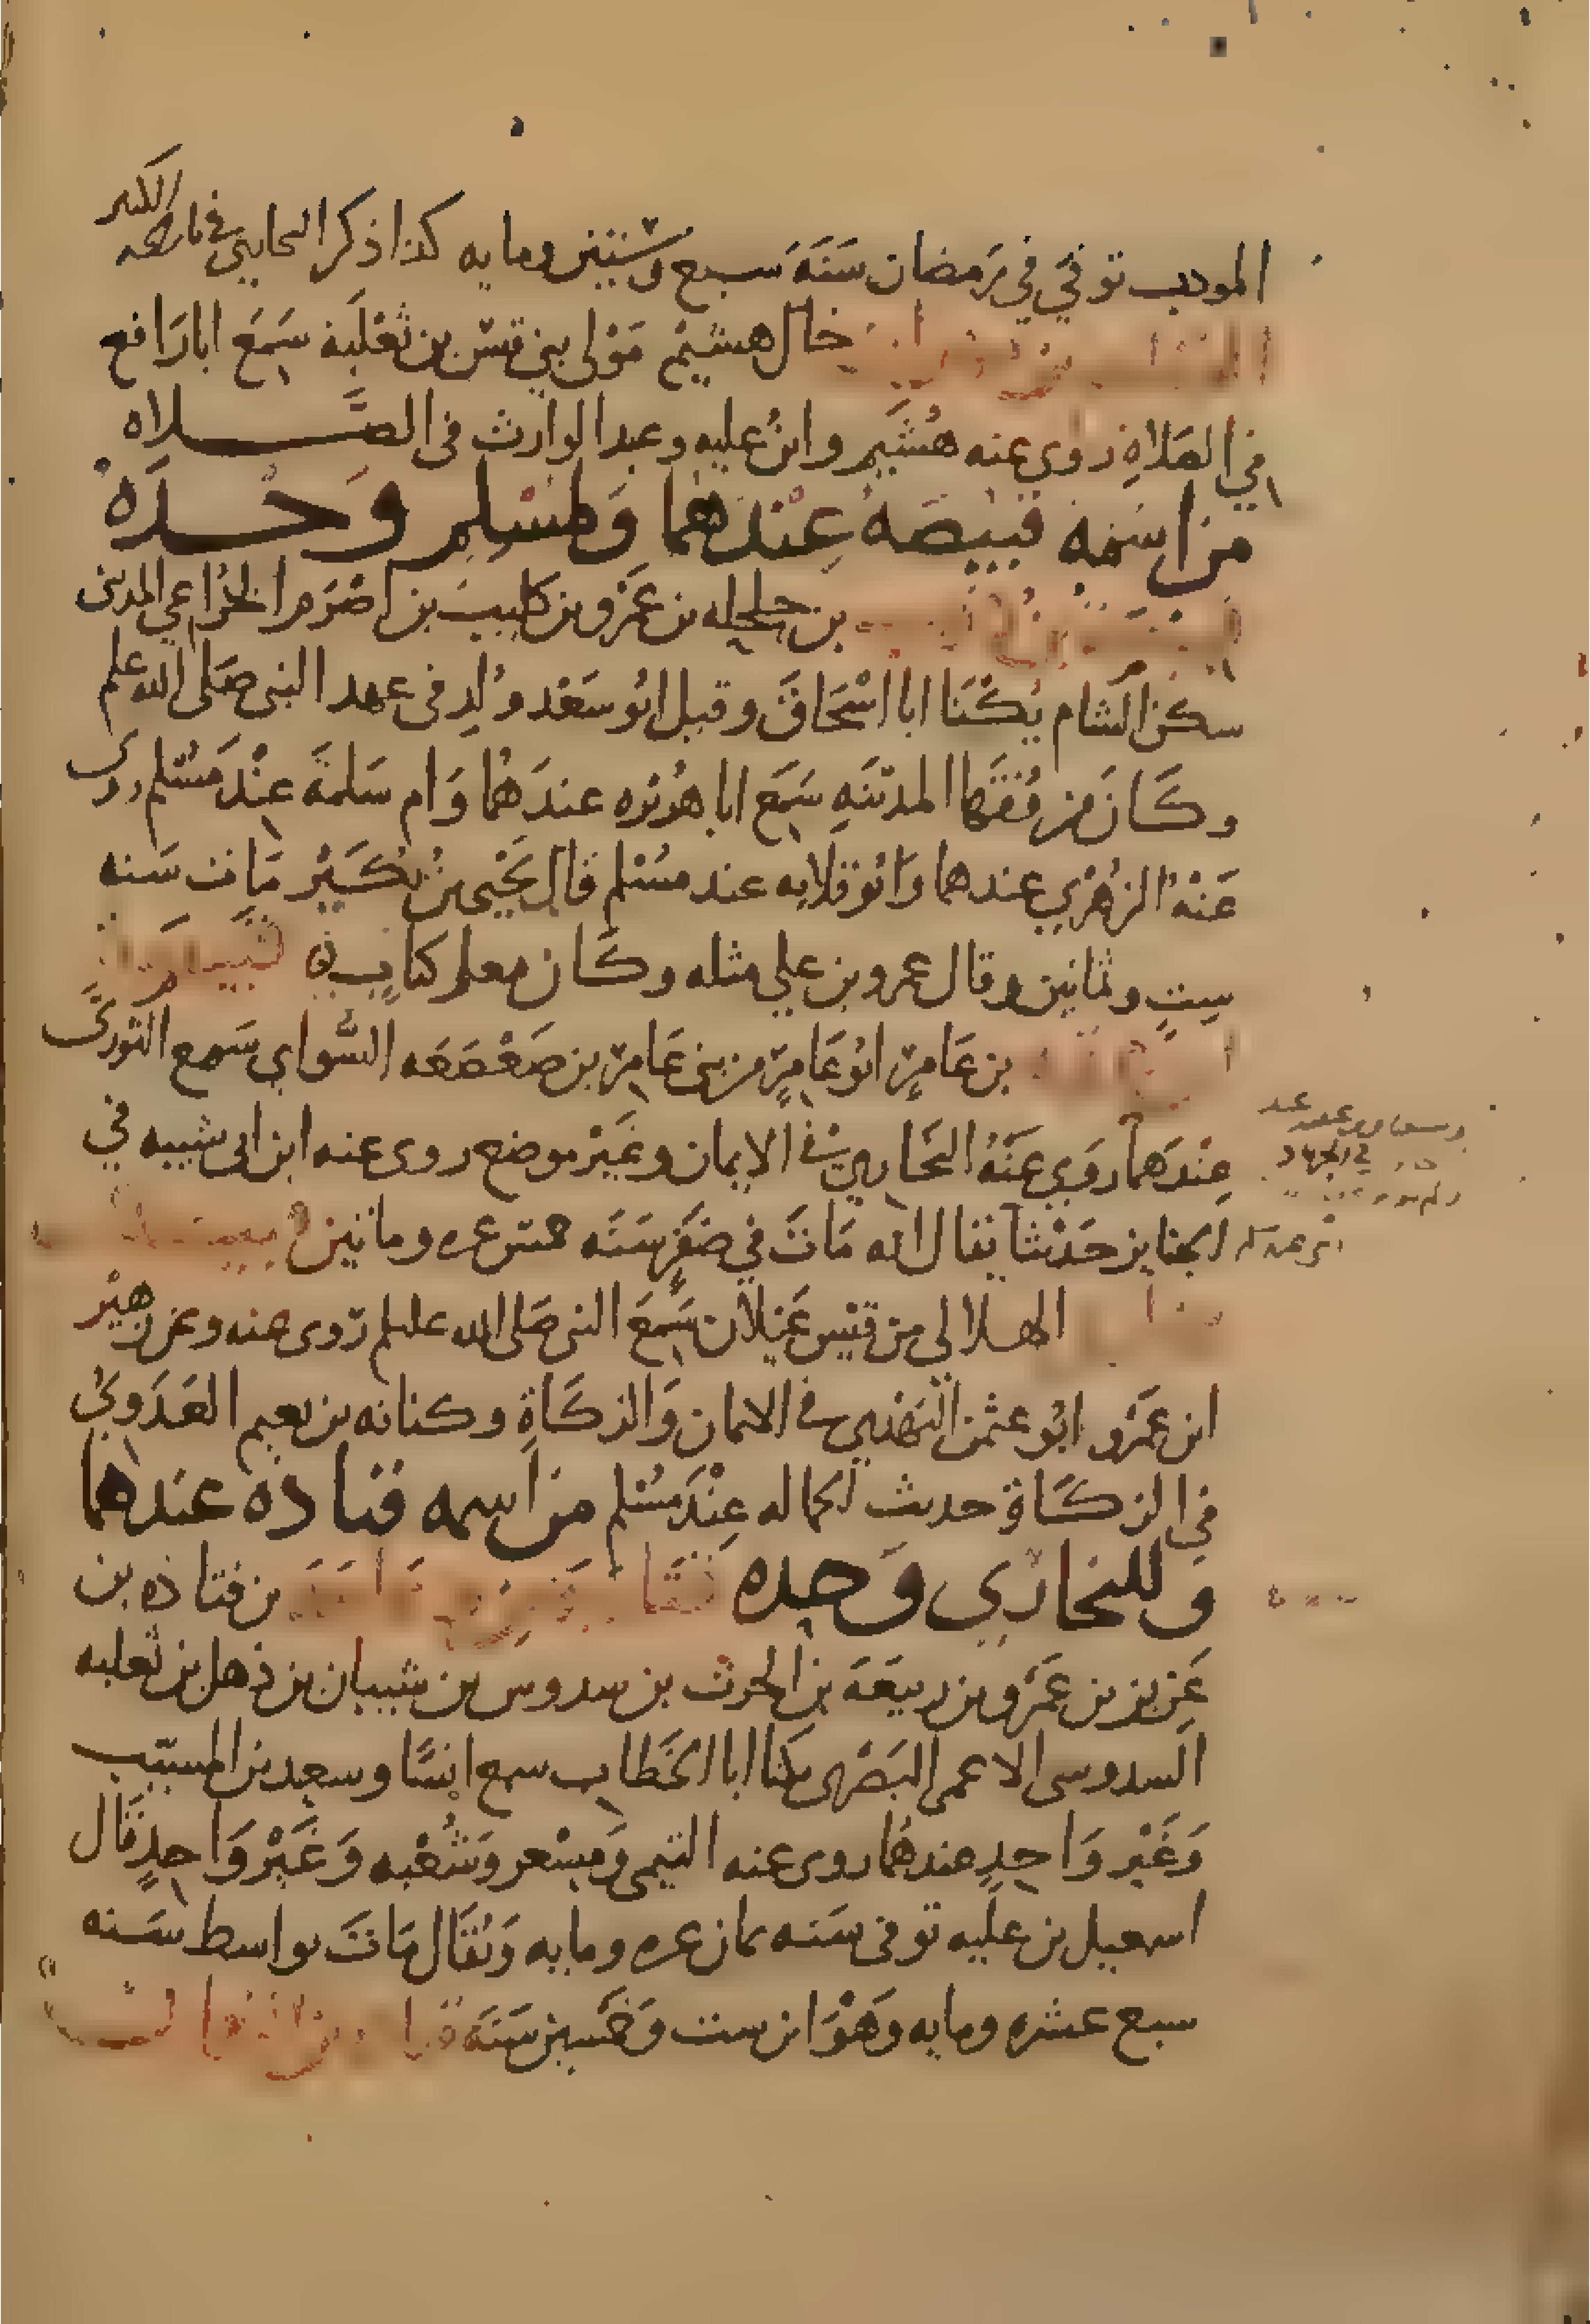 المودب توفي في رمضان سَنَة سبع وستين ومايه كذا ذكر البخاري في تاريخه الكبير
خال هشيم مَوْلى بني قيس بن ثَعْلَبَه سَمِعَ ابا رَافع
في الصَلاةِ روى عنه هُشَيم وابنُ عليه وعبد الوارث في الصَّلاه
من اسمه قبيصَه عِنْدهما وَلمسْلم وَحْدَهْ
بن حلحله بن عَمْرو بن كليب بن اصْرَم الخزاعي المدني
سكن الشام يُكْنَا ابا اسْحَاق وقيل ابُو سَعْد وُلِد في عهد النبي صَلى الله علم
وكَان من فُقَهَا المدينَهِ سَمِعَ ابا هُريره عندَهُما وَام سَلمَة عِنْدَ مسْلم روى
عَنْهُ الزهْرِي عندهما وَابُو قلابه عند مسْلم قال يَحْيى بنُ بُكَيْر مَات سَنه
سِتٍ وثمانين وقال عمرو بن علي مثله وكَان معلم كتابٍ
بن عَامِرٍ ابُو عَامِرٍ من بني عَامِر بن صَعْصَعَه السُّواي سَمع الثورىّ
عِنْدَهما رَوَى عَنْهُ البخَاري في الايمان وغَيْر موضع روى عنه ابن ابي شيبه في
الجنايز حَدْيثا يقال انه مَاتَ في صَفَرٍ سَنَه خمس عره وماتين
الهلالي من قيْس عَيْلان سَمِعَ النبي صَلى الله علىلم رَوى عنه وعن زهيْر
ابن عمْرو ابُو عثمن النهْدِي في الايمان وَالزكَاةِ وكنانه بن نعيم العَدَوىُ
في الزكَاة حديث الحماله عِنْدَ مسْلم من اسمه قتاده عندهما
وَللبخاري وَحده بن قتاده بن
عَزيز بن عَمْرو بن ربيعَة بن الحرث بن سدوس بن شيبان بن ذهل بن ثعلبه
السدوسى الاعمى البَصْرى يكنا ابا الخَطاب سمع انسًا وسعيد بن المسيّب
وَغَيْر وَاحِدٍ عندهُما روى عنه التيمى وَمِسْعر وَشُعْبه وَغَيْر وَاحِدٍ قَال
اسمعيل بن عليه توفى سَنه ثمان عره ومايه وَيُقَال مَاتَ بواسط سَنه
سبع عشره ومايه وَهْوَ ابن ست وَخَمسين سَنَة